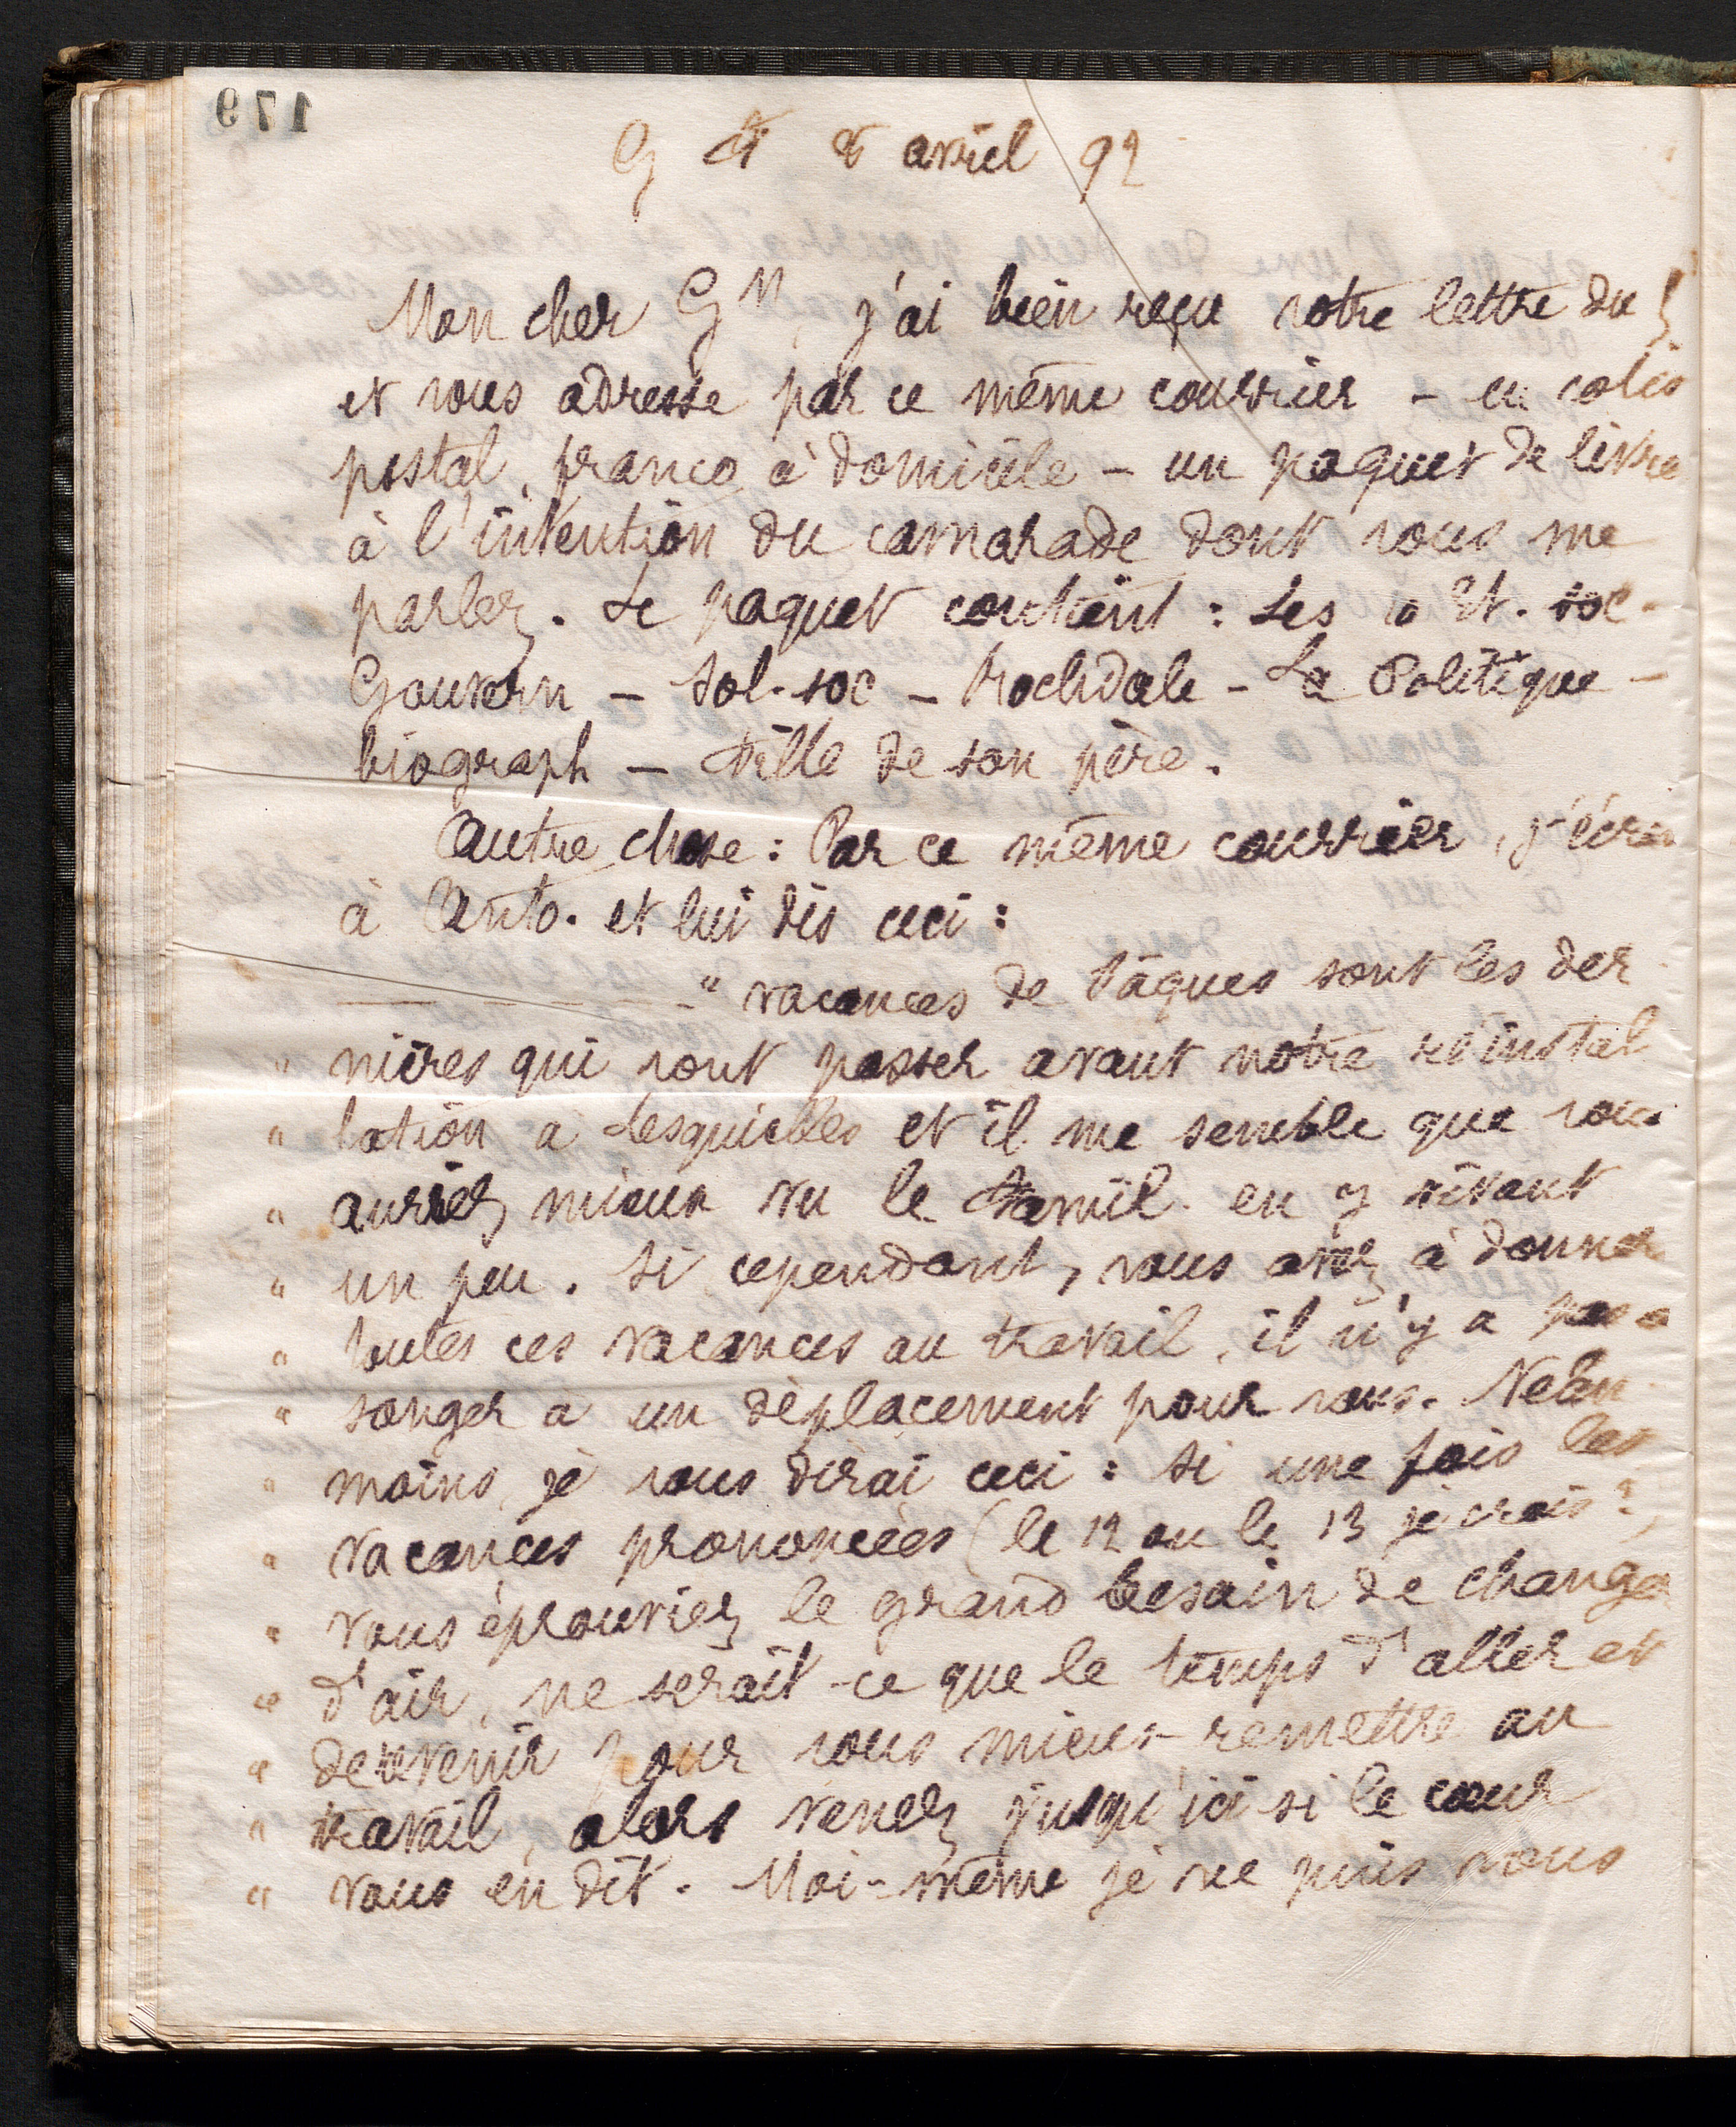 179
G 8 avril 92
Mon cher Gn j'ai bien reçu votre lettre du
et vous adresse par ce même courrier - en colis
postal, franco à domicile - un paquet de livre
à l'intention du camarade dont vous me
parlez. Le paquet contient : Les Et. soc -
Gouvern - Sol. soc - Rochdale - La Politique -
biograph - Fille de son père.
Autre chose : Par ce même courrier, j'écris
à Anto. et lui dis ceci :
" vacances de Pâques sont les der
" nières qui vont passer avant notre réinstal
" lation à Lesquielles et il me semble que vous
" auriez mieux vu le Famil. en y vivant
" un peu. Si cependant, vous avez à donner
" toutes ces vacances au travail, il n'y a pas à
" songer à un déplacement pour vous. Néan
" moins, je vous dirai ceci : Si une fois les
" vacances prononcées (le 12 ou le 13 je crois ?)
" vous éprouviez le grand besoin de changer
" d'air, ne serait-ce que le temps d'aller et
" de revenir pour vous mieux remettre au
" travail, alors venez jusqu'ici si le cœur
" vous en dit. Moi-même je ne puis vous